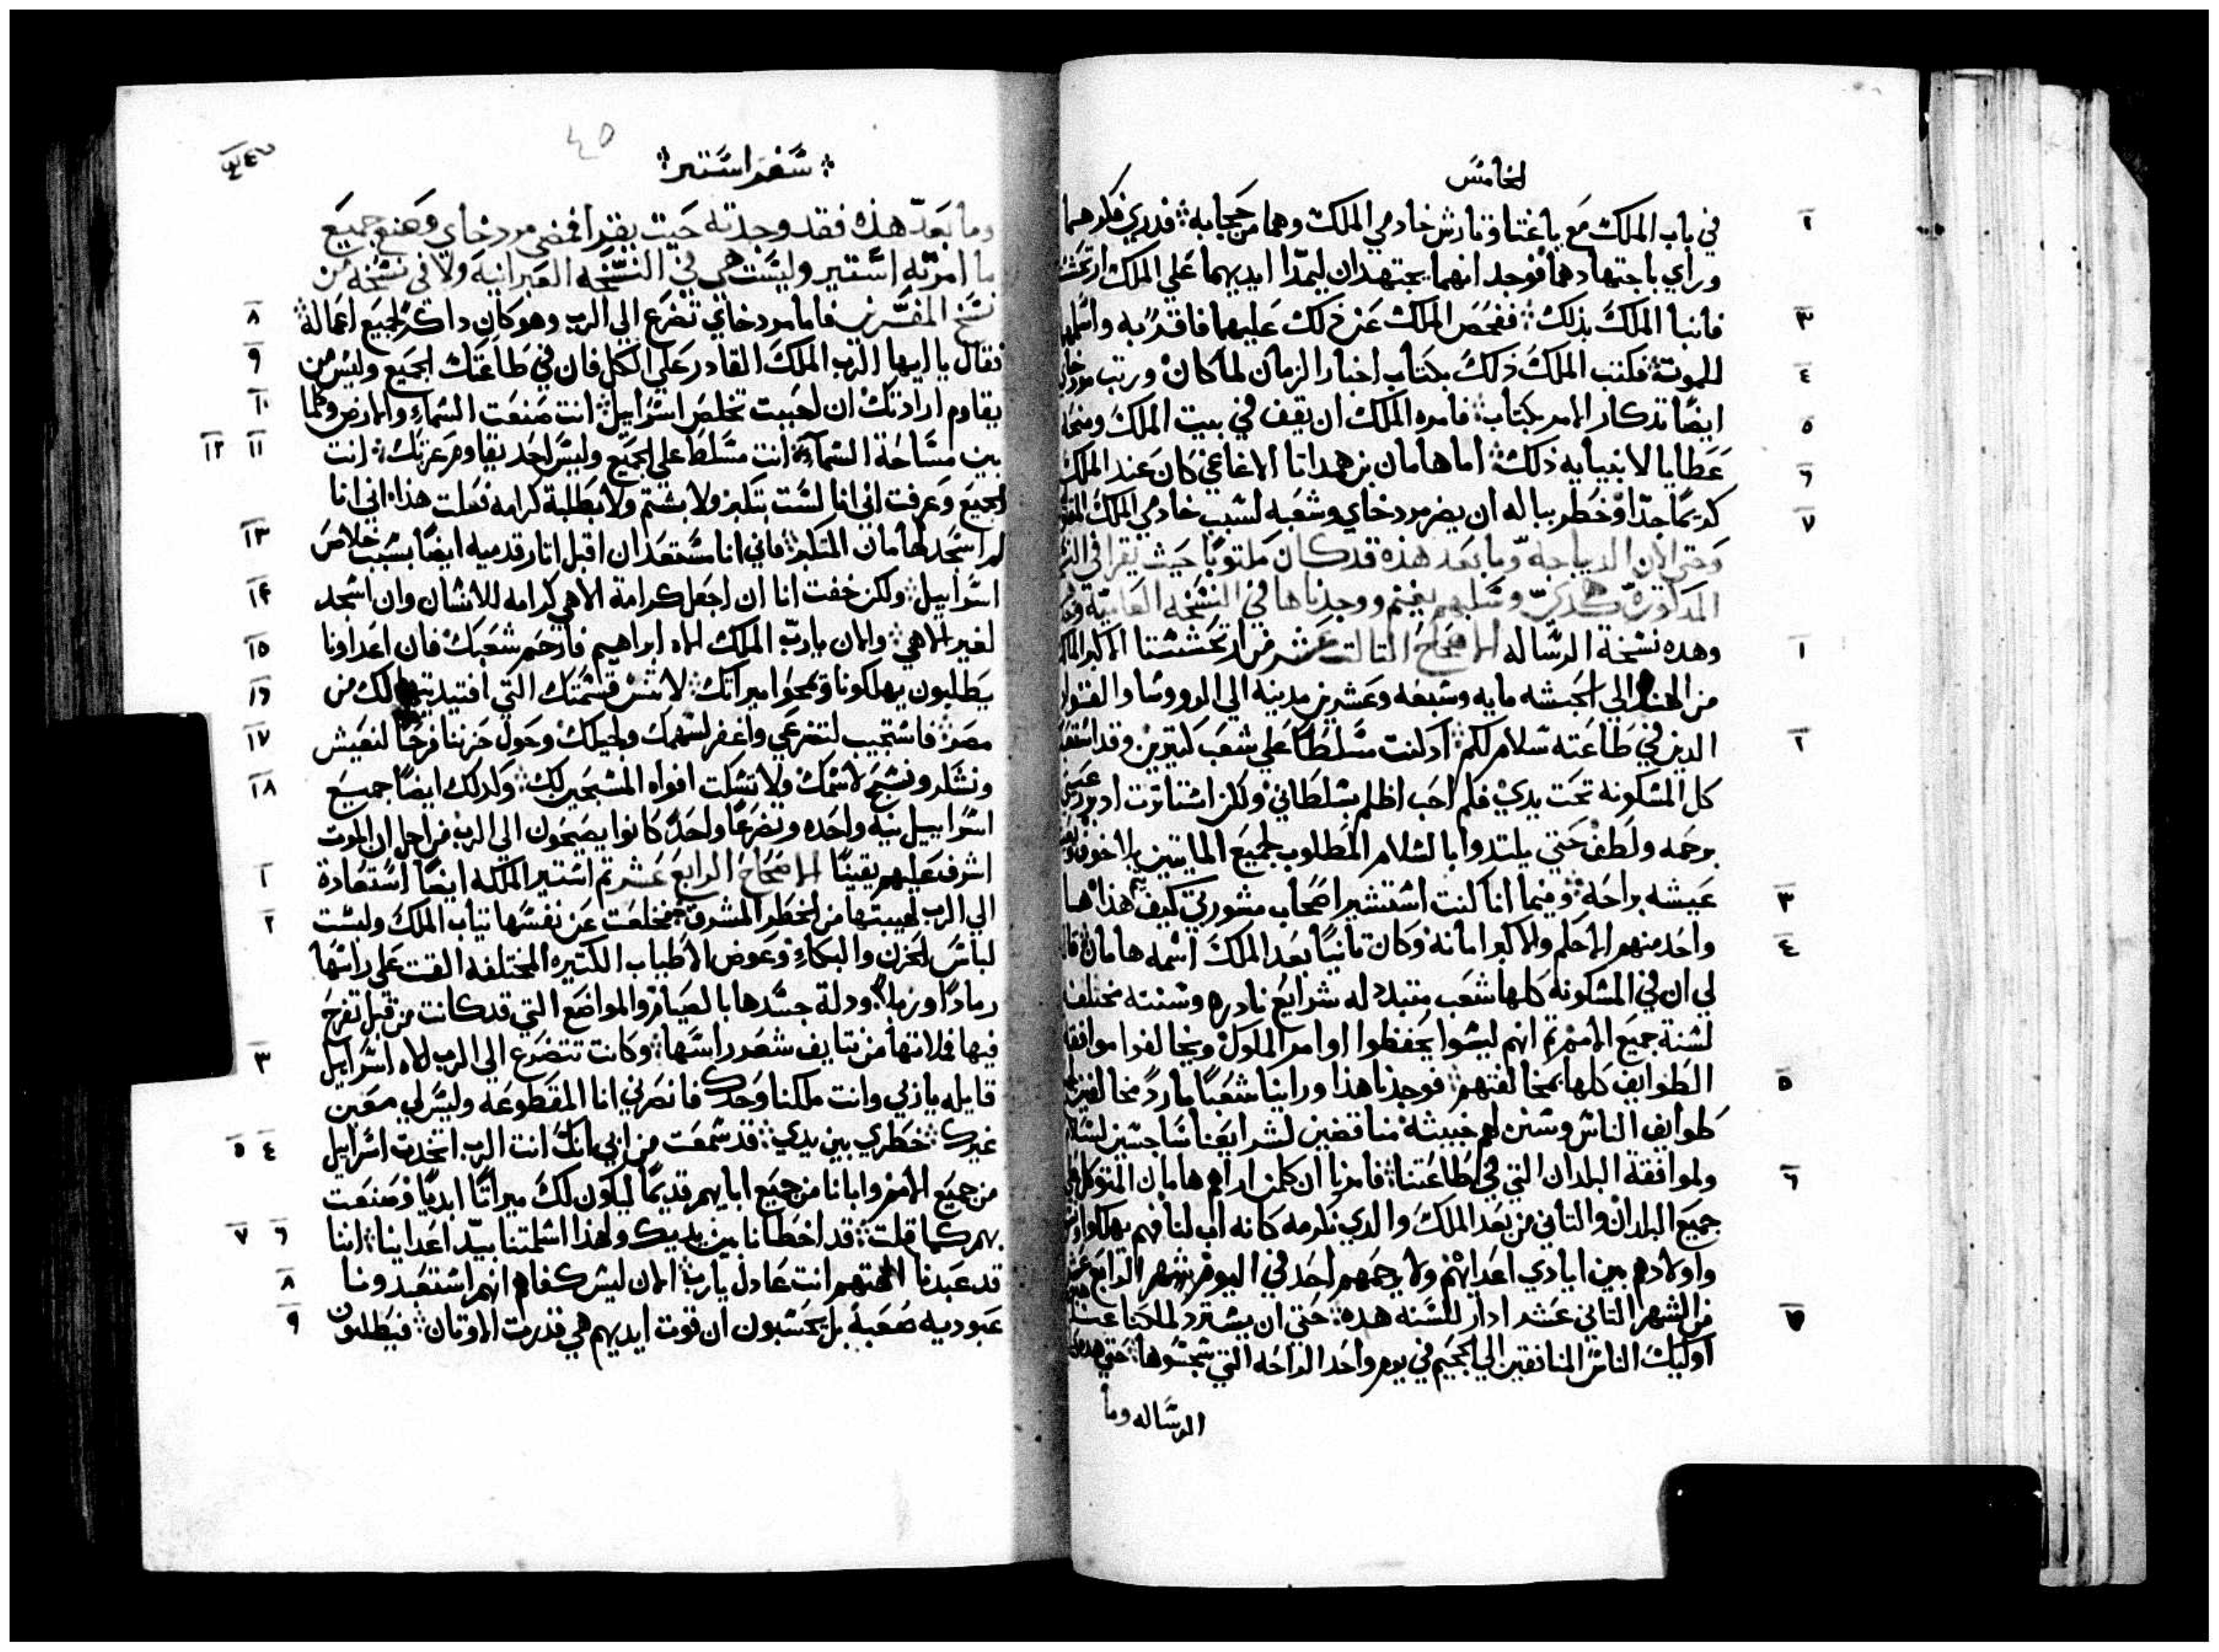 الخامس
في باب الملك مع باغتا وتارش خادمي الملك وهما من حجابه فدري فكرهما
وراي باجتهادهما فوجد انهما يجتهدان ليمدا ايديهما علي الملك ارتحشت
٣ فانبا الملك بذلك ففحص الملك عن ذلك عليهما فاقر به واسلمهما
٤ للموت فكتب الملك ذلك بكتاب اخبار الزمان لما كان ورتب مردخاي
٥ ايضا تدكار الامر بكتاب فامره الملك ان يقف في بيت الملك ومنحه
٦ عطايا لانبيايه ذلك اما هامان بن همداتا الاغاغي كان عند الملك
٧ كريما جدا وخطر بباله ان يضر مردخاي وشعبه لسبب خادمي الملك
وحتي الان الديباجه وما بعد هذه قد كان مكتوبا حيث يقرا في
المدكورة وسلبهم بغيتم ووجدناها في النسخه العاميه
١ وهده نسخة الرساله الاصحاح التالت عشر من ارتحششتا الاكبر المالك
من الهند الي الحبشه مايه وسبعه وعشرين مدينه الي الرووسا والقواد
٢ الدين في طاعته سلام لكم اد كنت مسلطا علي شعب كتيرين وقد استعبد
كل المسكونه تحت يدي فلم احب اظلم بسلطاني ولكن اشتاترت ادبر
برحمه ولطف حتي يلتدوا بالسلام المطلوب لجميع المايتين بلا خوف
٣ عيشه براحه وفيما انا كنت استشير اصحاب مشورتي كيف يتم هدا
٤ واحد منهم الاحلم والاكبر امانه وكان تانيا بعد الملك اسمه هامان قال
لي ان في المسكونه كلها شعب متبدد له شرايع نادره وسنته مختلف
لسنة جميع الامم تم انهم ليسوا يحفظوا اوامر الملوك ويخالفوا موافقة
٥ الطوايف كلها بمخالفتهم فوجدنا هذا وراينا شعبا مارد مخالف
طوايف الناس وسنن لهم خبيثة مناقضين لشرايعنا
٦ ولموافقة البلدان التي في طاعتنا فامرنا ان كلمن اراهم هامان المتوكل
جميع البلدان والتاني من بعد الملك والدي نكرمه كانه اب لنا فهم يهلكوا
واولادهم بين ايادي اعدايهم ولا يرحمهم احد في اليوم الرابع عشر
٧ من الشهر التاني عشر ادار للسنه هده حتي ان يسترد لملكنا
اوليك الناس المنافقين الي الجحيم في يوم واحد الراحه التي سجسوها حتي
الرساله وما
سفر استير
٤٥
وما بعد هذه فقد وجدته حيت يقرا فمضي مردخاي وصنع جميع
ما امرته استير وليست هي في النسخه العبرانيه ولا في نسخه من
٨ نسخ المفسرين فاما مردخاي تضرع الي الرب وهو كان داكر لجميع اعماله
٩ فقال يا ايها الرب الملك القادر علي الكل فان في طاعتك الجميع وليس من
١٠ يقاوم ارادتك ان احببت تخلص اسراييل انت صنعت السماء والارض وكلما
١١ ١٢ بين مساحة السماء انت مسلط علي الجميع وليس احد يقاوم عزتك انت
الجميع وعرفت اني انا لست بتكبر ولا بشتم ولا بطلبة كرامه فعلت هذا اني انا
١٣ لم اسجد لهامان المتكبر فاني انا مستعد ان اقبل اتار قدميه ايضا بسبب خلاص
١٤ اسراييل ولكن خفت انا ان اجعل كرامة الاهي كرامه للانسان وان اسجد
١٥ لغير الاهي والان يارب الملك اله ابراهيم فارحم شعبك فان اعداونا
١٦ يطلبون يهلكونا ويمحوا ميراتك لا تنس قسمتك التي افتديتها لك من
١٧ مصر فاستجيب لتضرعي واغفر لسهمك ولحبلك وحول حزننا فرحا لنعيش
١٨ ونشكر ونسبح لاسمك ولا تسكت افواه المسبحين لك وكدلك ايضا جميع
اسراييل بنيه واحده وتضرعا واحد كانوا يصعون الي الرب من اجل ان الموت
١ اشرف عليهم يقينا الاصحاح الرابع عشر تم استير الملكه ايضا استعادة
٢ الي الرب لهيبتها من الخطر المشرف فخلعت عن نفسها تياب الملك ولبست
لباس الحزن والبكاء وعوض الاطياب الكتيره المختلفه القت علي راسها
رمادا وزبلا ودلة جسدها بالصيام والمواضع التي قد كانت من قبل تفرح
٣ فيها فلاتها من نتايف شعر راسها وكانت تتضرع الي الرب الاه اسراييل
قايله ياربي وانت ملكنا وحدك فانصرني انا المقطوعه وليس لي معين
٤ ٥ غيرك خطري بين يدي قد سمعت من ابي انك انت الرب اتخدت اسراييل
من جميع الامم وابانا من جميع ابايهم قديما ليكون لك ميراتا ابديا وصنعت
٦ ٧ بهم كما قلت قد اخطانا بين يديك ولهذا اسلمتنا بيد اعداينا اننا
٨ قد عبدنا الهتهم انت عادل يارب الان ليس كفاهم انهم استعبدونا
٩ عبوديه صعبه بل يحسبون ان قوت ايديهم هي قدرت الاوتان فيطلبون